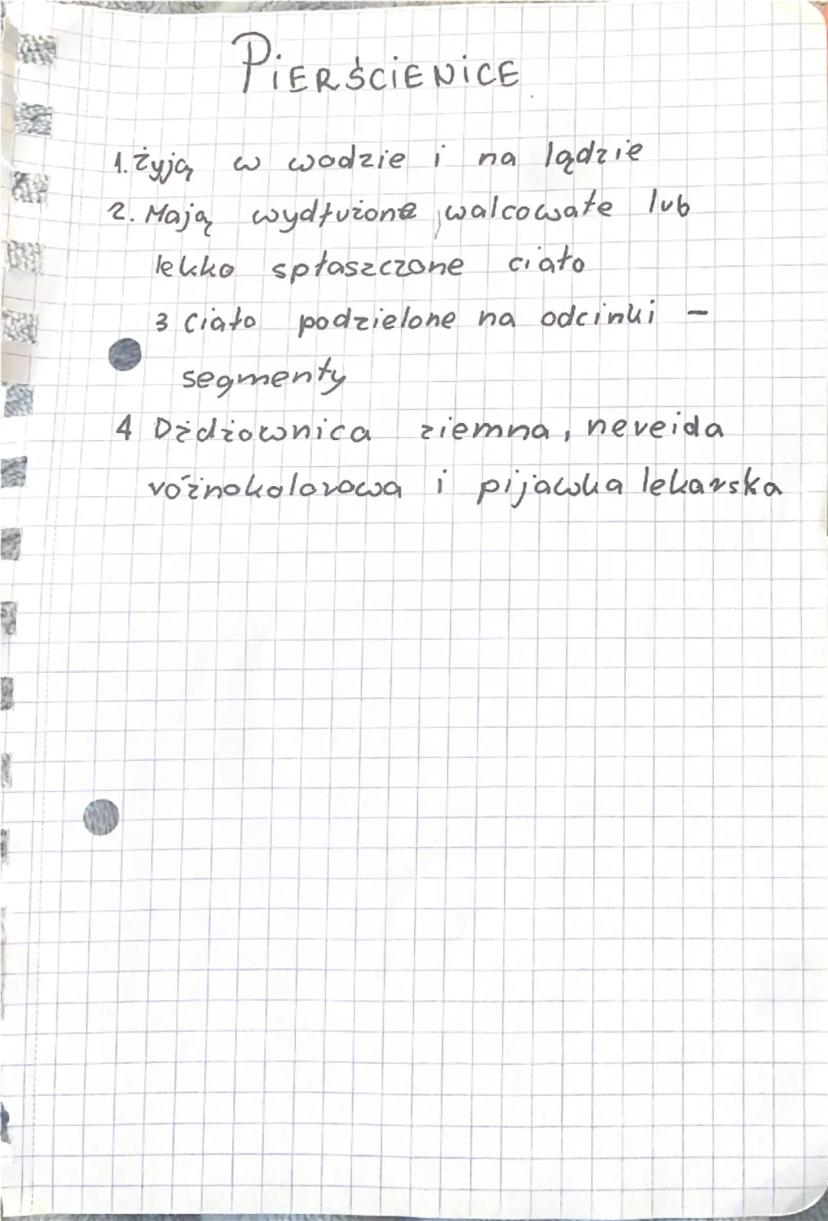 PIERŚCIENICE
1. Żyją w wodzie i na lądzie
2. Mają wydłużone, walcowate lub
lekko spłaszczone ciało
3 Ciało podzielone na odcinki -
segmenty
4 Dżdżownica ziemna, nereida
różnokolorowa i pijawka lekarska